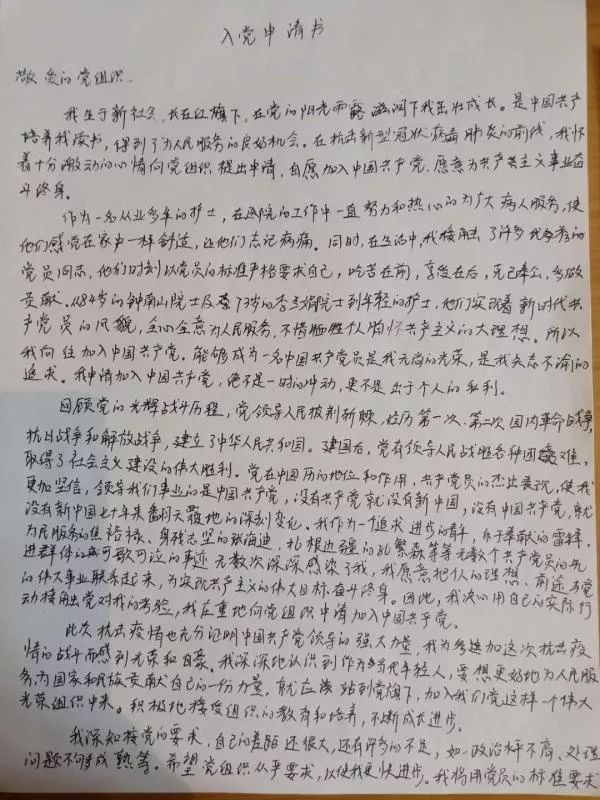 入党申请书
敬爱的党组织：
我生于新社会，长在红旗下，在党的阳光雨露滋润下我茁壮成长。是中国共产
培养我读书，得到了为人民服务的良好机会。在抗击新型冠状病毒肺炎的前线，我怀
着十分激动的心情向党组织提出申请，自愿加入中国共产党，愿意为共产主义事业奋
斗终身。
作为一名从业多年的护士，在医院的工作中一直努力和热心的为广大病人服务，使
他们感觉在家中一样舒适，让他们忘记病痛。同时，在生活中，我接触了许多优秀的
党员同志，他们时刻以党员的标准严格要求自己，吃苦在前，享受在后，克己奉公，多做
贡献。从84岁的钟南山院士及73岁的李兰娟院士到年轻的护士，他们实现着新时代共
产党员的风貌，全心全意为人民服务，不惜牺牲个人胸怀共产主义的大理想。所以
我向往加入中国共产党。能够成为一名中国共产党员是我无尚的光荣，是我矢志不渝的
追求。我申请加入中国共产党，绝不是一时的冲动，更不是出于个人的私利。
回顾党的光辉战斗历程，党领导人民披荆斩棘，经历第一次、第二次国内革命战争，
抗日战争和解放战争，建立了中华人民共和国。建国后，党有领导人民战胜各种困难，
取得了社会主义建设的伟大胜利。党在中国历的地位和作用，共产党员的杰出表现，使我
更加坚信，领导我们事业的是中国共产党，没有共产党就没有新中国，没有中国共产党，就
没有新中国七十年来翻天覆地的深刻变化。我作为一个追求进步的青年，乐于奉献的雷锋，
为民服务的焦裕禄、身残志坚的张海迪，扎根边疆的孔繁森等等无数个共产党员的先
进群体的可歌可泣的事迹无数次深深感染了我，我愿意把个人的理想、前途与党
的伟大事业联系起来，为实现共产主义的伟大目标奋斗终身。因此，我决心用自己的实际行
动接触党对我的考验，我庄重地向党组织申请加入中国共产党。
此次抗击疫情也充分证明中国共产党领导的强大力量，我为参加这次抗击疫
情的战斗而感到光荣和自豪。我深深地认识到作为当代年轻人，要想更好地为人民服
务，为国家和民族贡献自己的一份力量，就应该站到党旗下，加入我们党这样一个伟大
光荣组织中来。积极地接受组织的教育和培养，不断成长进步。
我深知按党的要求，自己的差距还很大，还有许多的不足，如政治水平不高、处理
问题不够成熟等。希望党组织从严要求，以使我更快进步。我将用党员的标准要求